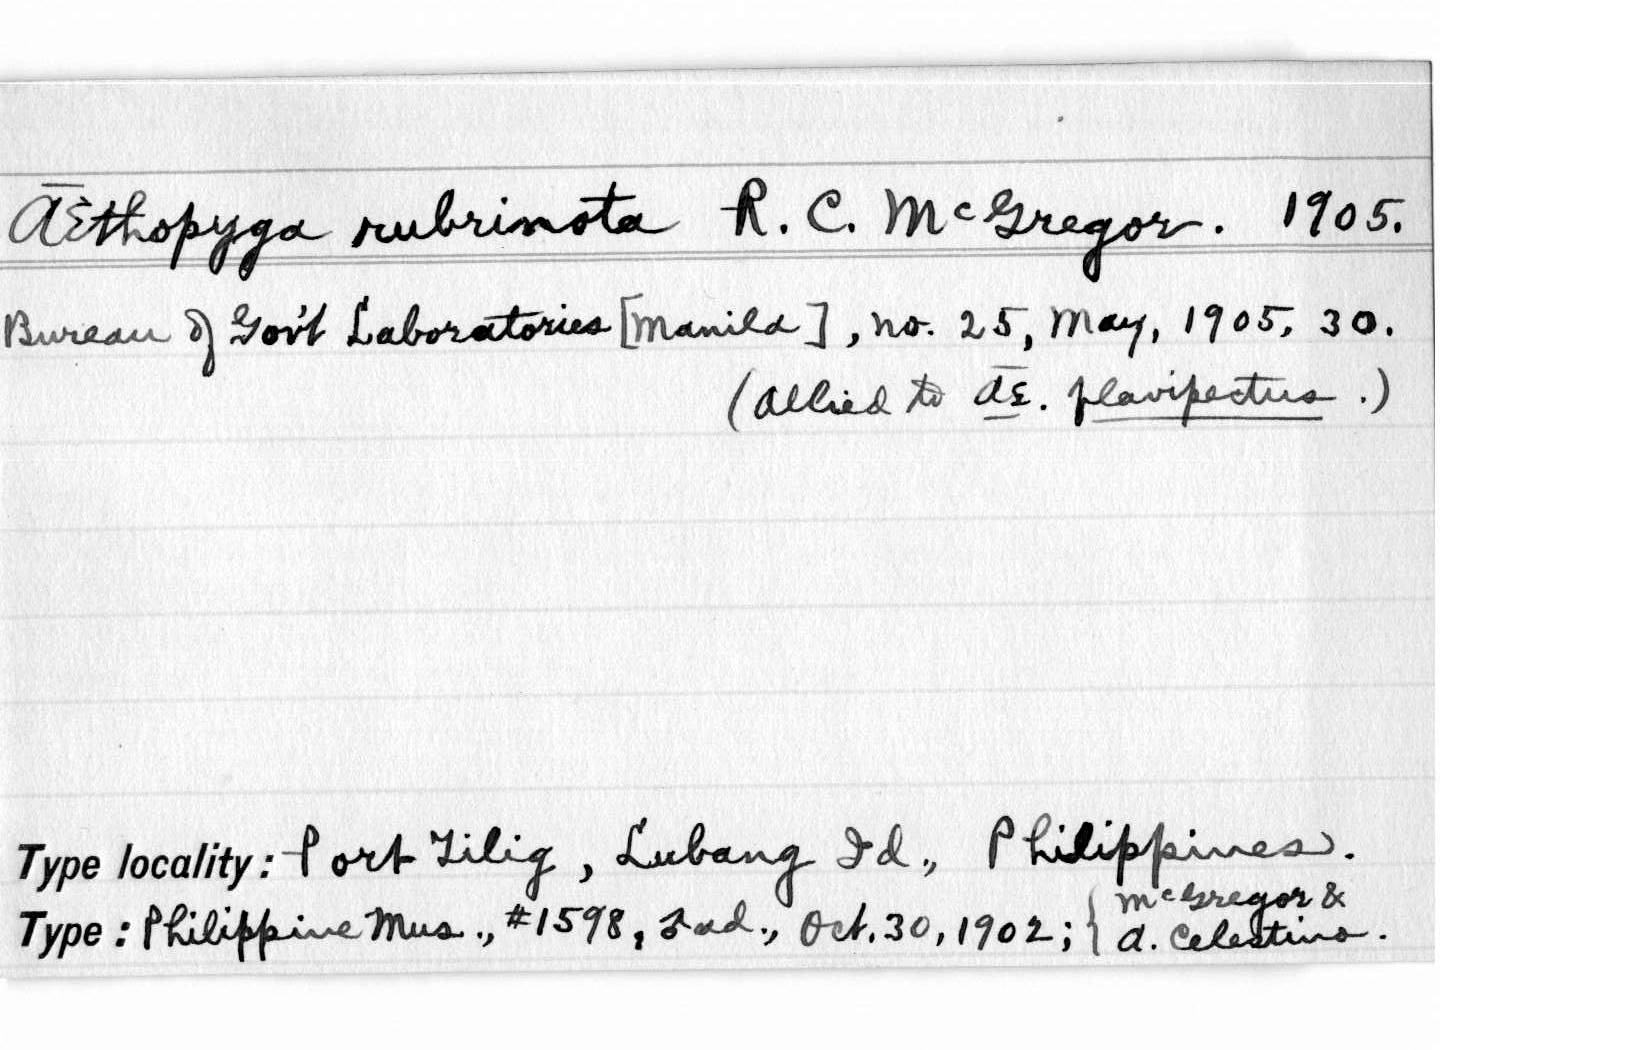 Æthopyga rubrinota R. C. McGregor. 1905.
Bureau of Gov't Laboratories [Manila], no. 25, May, 1905, 30.
(Allied to Æ. flavipectus.)
Type locality: Port Tilig, Lubang Id., Philippines.
Type: Philippine Mus., #1598, ♂ ad., Oct. 30, 1902; { McGregor &
A. Celestino.